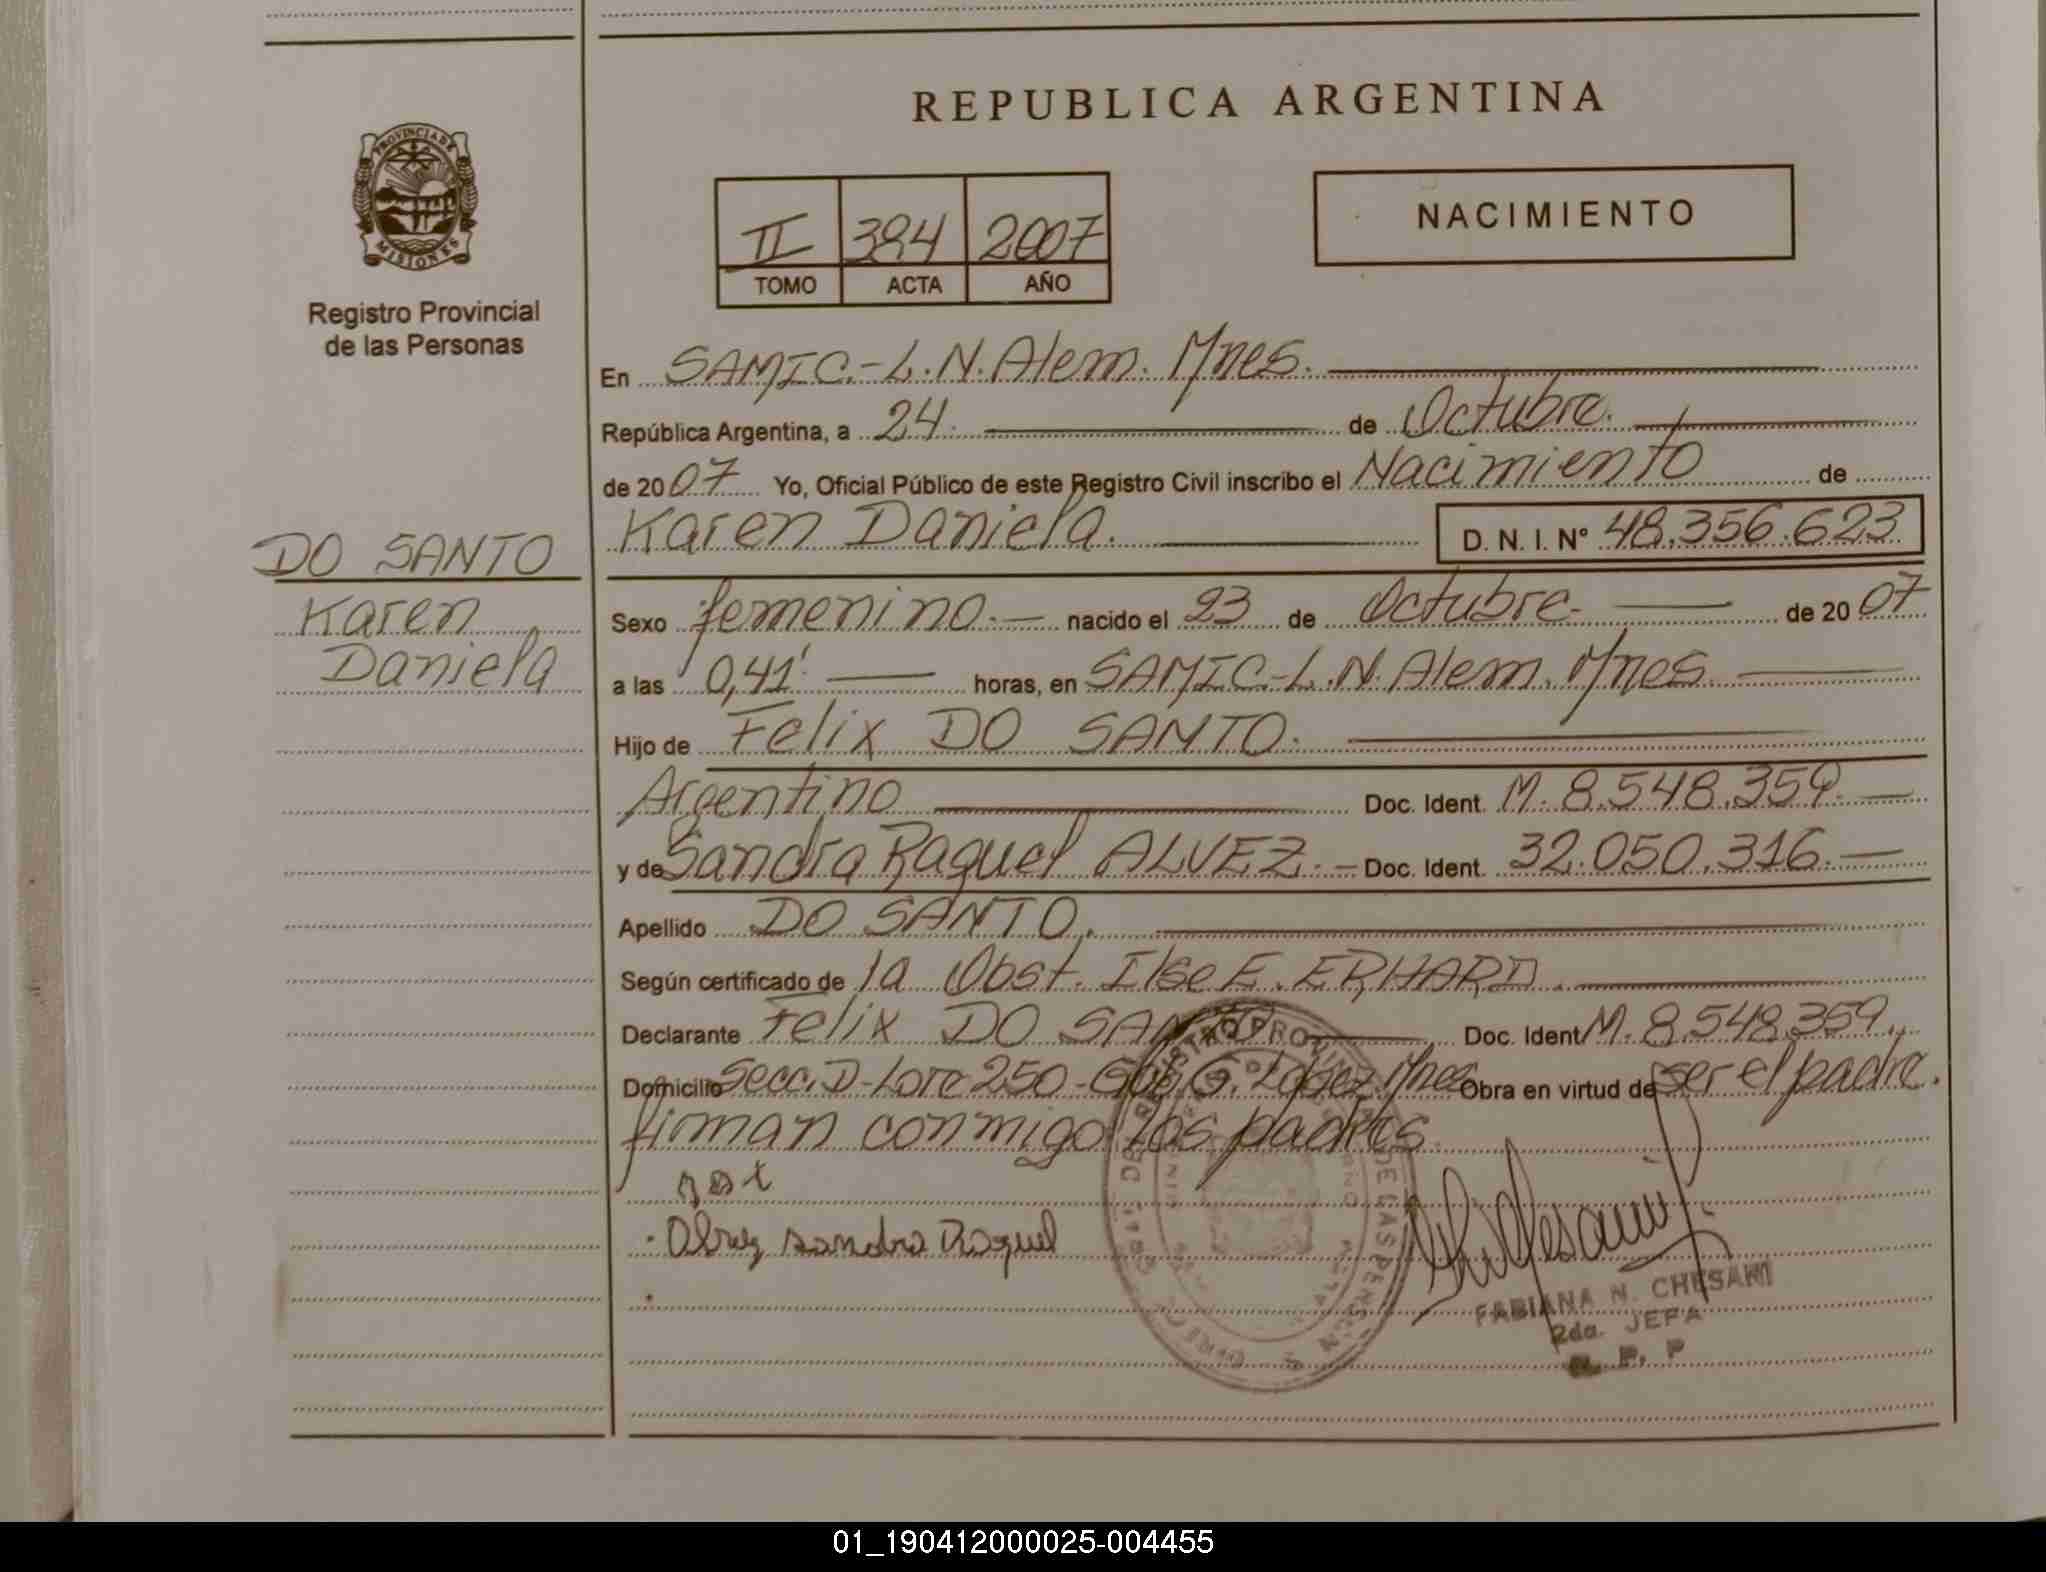 REPUBLICA ARGENTINA
PROVINCIA DE
MISIONES
Registro Provincial
de las Personas
II 394 2007
TOMO ACTA AÑO
NACIMIENTO
En SAMIC.-L.N.Alem. Mnes.
República Argentina, a 24. de Octubre.
de 2007 Yo, Oficial Público de este Registro Civil inscribo el Nacimiento de
Karen Daniela. D. N. I. N° 48.356.623
DO SANTO
Karen
Daniela
Sexo femenino.- nacido el 23 de Octubre- de 2007
a las 0,41' horas, en SAMIC-L.N.Alem. Mnes.
Hijo de Felix DO SANTO.
Argentino Doc. Ident. M. 8.548.359.
y de Sandra Raquel ALVEZ.- Doc. Ident. 32.050.316.
Apellido DO SANTO.
Según certificado de la Obst. Ilse E. ERHARD.
Declarante Felix DO SANTO Doc. Ident M. 8.548.359.
Domicilio Secc. D-Lote 250-Gob. G. López. Mnes Obra en virtud de ser el padre.
firman conmigo los padres.
Sandra Raquel
FABIANA N. CHESANI
2da. JEFA
R. P. P
01_190412000025-004455